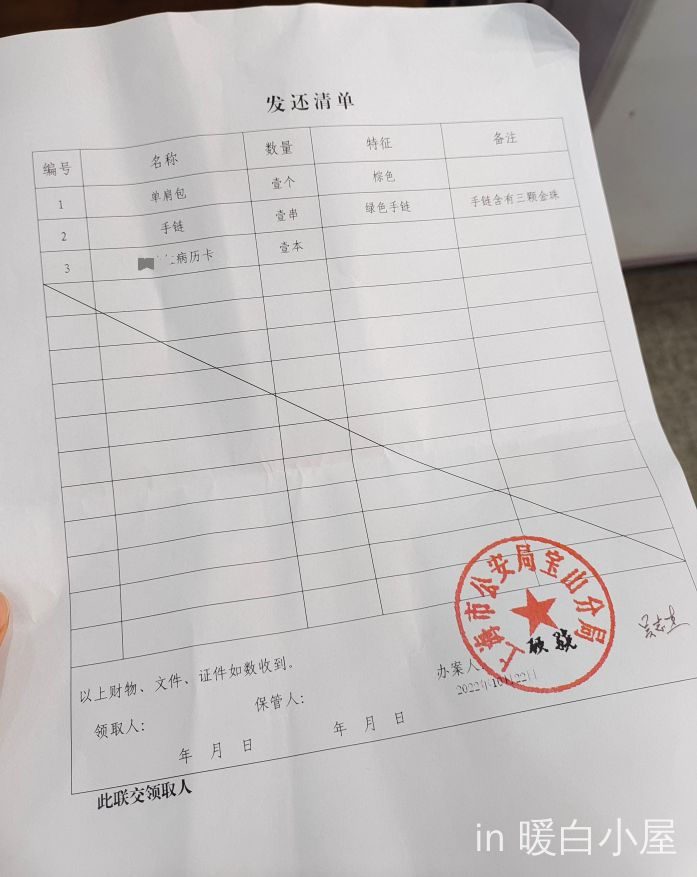 发还清单
编号 名称 数量 特征 备注
1 单肩包 壹个 棕色
2 手链 壹串 绿色手链 手链含有三颗金珠
3 病历卡 壹本
以上财物、文件、证件如数收到。
领取人: 保管人: 办案人:
年 月 日 年 月 日 2022年10月22日
上海市公安局宝山分局
此联交领取人
in 暖白小屋